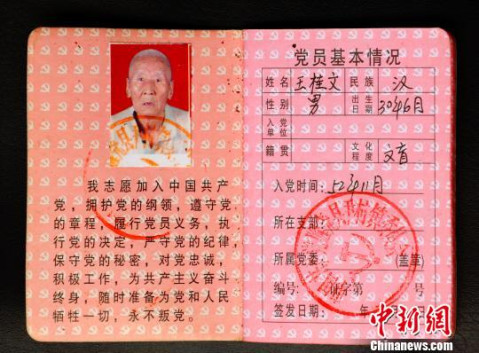 我志愿加入中国共产
党，拥护党的纲领，遵守党
的章程，履行党员义务，执
行党的决定，严守党的纪律，
保守党的秘密，对党忠诚，
积极工作，为共产主义奋斗
终身，随时准备为党和人民
牺牲一切，永不叛党。
党员基本情况
姓名 王桂文 民族 汉
性别 男 出生日期 30年6月
入党单位
籍贯 文化程度 文盲
入党时间：52年11月
所在支部：
所属党委： (盖章)
编号： 证字第 号
签发日期： 年
中新网
Chinanews.com